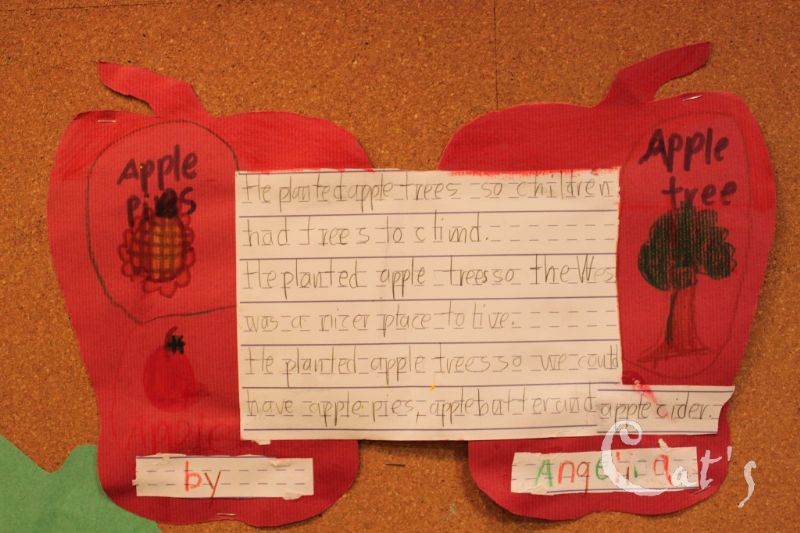 Apple
pies
Apple
tree
He planted apple trees so children
had trees to climd.
He planted apple trees so the Wes
was a nizer place to live.
He planted apple trees so we could
have apple pies, applebutter and apple cider.
Apple
by
Angelica
Cat's